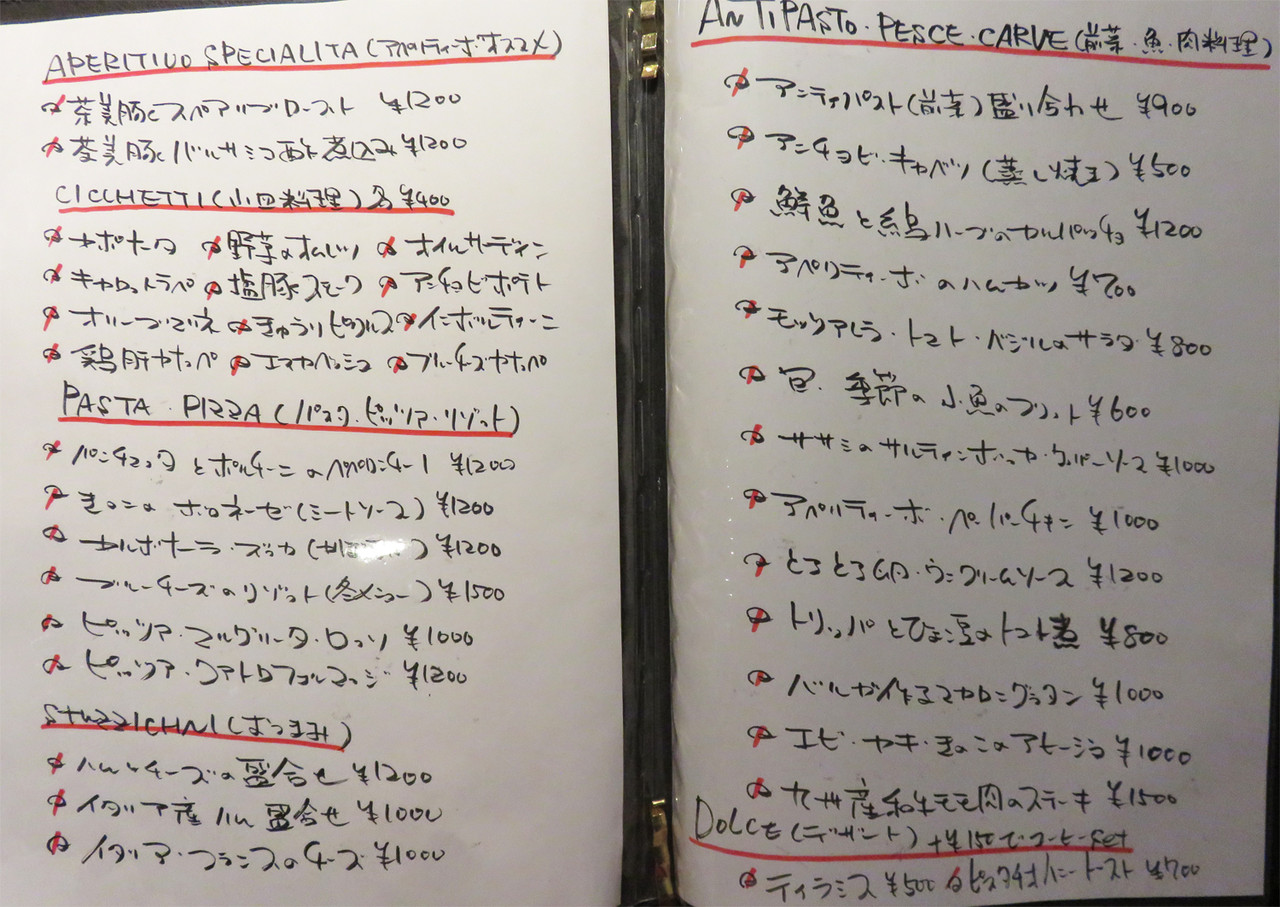 APERITIVO SPECIALITA (アペリティーボ オススメ)
茶美豚のスペアリブロースト ¥1200
茶美豚のバルサミコ酢煮込み ¥1200
CICCHETTI (小皿料理) 各¥400
カポナータ 野菜のオムレツ オイルサーディン
キャロットラペ 塩豚スモーク アンチョビポテト
オリーブマリネ きゅうりピクルス インボルティーニ
鶏肝カナッペ エスカベッシュ ブルーチーズカナッペ
PASTA・PIZZA (パスタ・ピッツア・リゾット)
パンチェッタとポルチーニのペペロンチーノ ¥1200
きのこのボロネーゼ (ミートソース) ¥1200
カルボナーラ・ズッカ ¥1200
ブルーチーズのリゾット (冬メニュー) ¥1500
ピッツア・マルゲリータ・ロッソ ¥1000
ピッツア・クアトロフォルマッジ ¥1200
STUZZICHNI (おつまみ)
ハムとチーズの盛合せ ¥1200
イタリア産ハム盛合せ ¥1000
イタリア・フランスのチーズ ¥1000
ANTIPASTO・PESCE・CARVE (前菜・魚・肉料理)
アンティパスト (前菜) 盛り合わせ ¥900
アンチョビ・キャベツ (蒸し焼き) ¥500
鮮魚と糸島ハーブのカルパッチョ ¥1200
アペリティーボのハムカツ ¥700
モッツアレラ・トマト・バジルのサラダ ¥800
季節の小魚のフリット ¥600
ササミのサルティンボッカ・ケッパーソース ¥1000
アペリティーボ・ペーパーチキン ¥1000
とろとろ ・クリームソース ¥1200
トリッパとひよこ豆のトマト煮 ¥800
バルが作るマカロニグラタン ¥1000
エビ・カキ・きのこのアヒージョ ¥1000
九州産和牛モモ肉のステーキ ¥1500
DOLCE (デザート) +¥150でコーヒーset
ティラミス ¥500 ピスタチオハニートースト ¥700